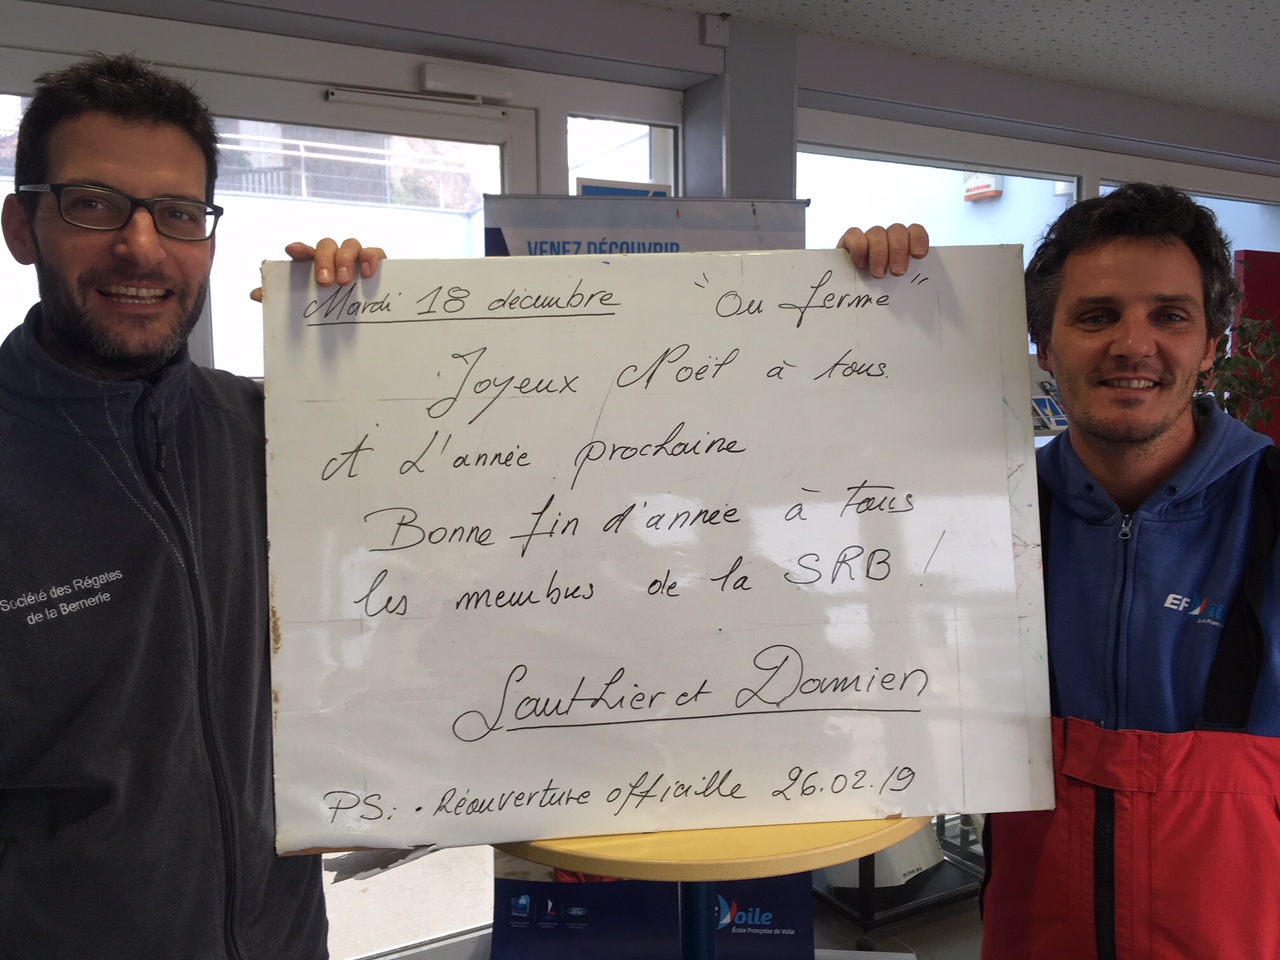 VENEZ DÉCOUVRIR
Mardi 18 décembre "On ferme"
Joyeux Noël à tous.
A L'année prochaine
Bonne fin d'année à tous
les membres de la SRB !
Gauthier et Damien
PS: . Réouverture officielle 26.02.19
Société des Régates
de la Bernerie
EF Voile
Voile
École Française de Voile